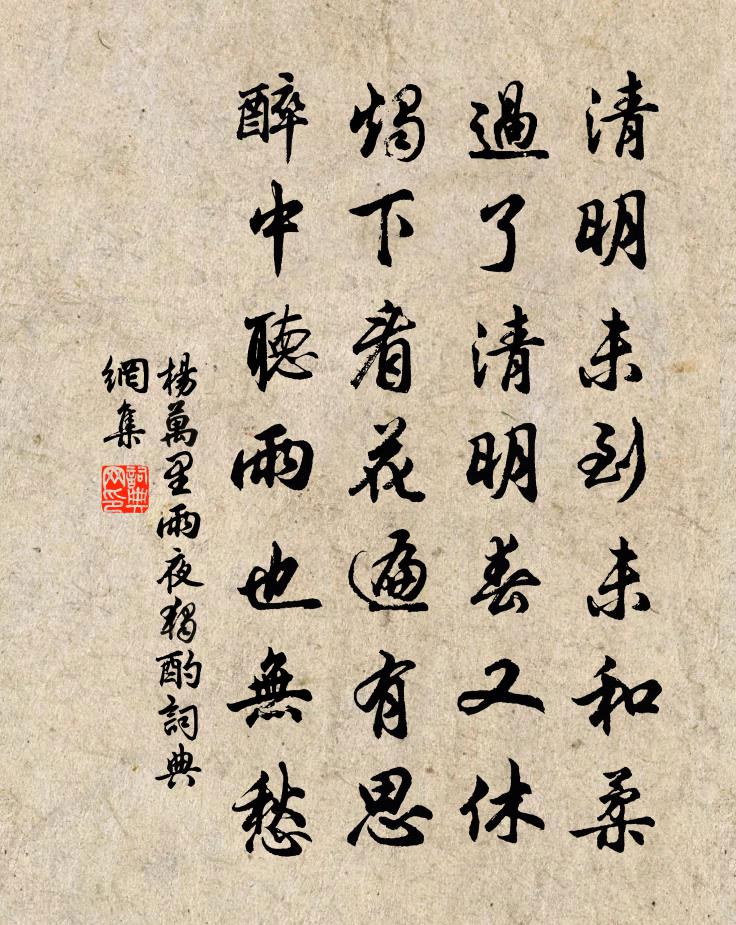 清明未到未和柔
過了清明春又休
燭下看花遍有思
醉中聽雨也無愁
楊萬里雨夜獨酌詞典
網集
詞典
网印